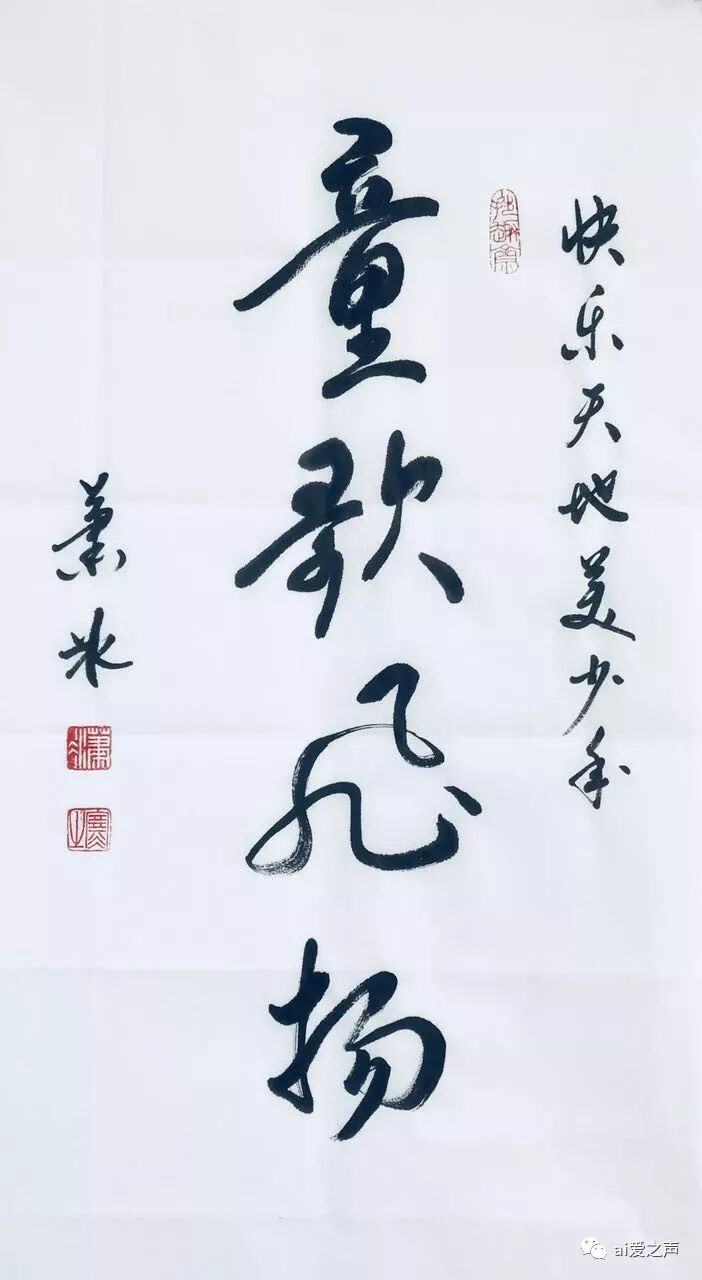 快乐天地美少年
童歌飞扬
萧冰
ai爱之声